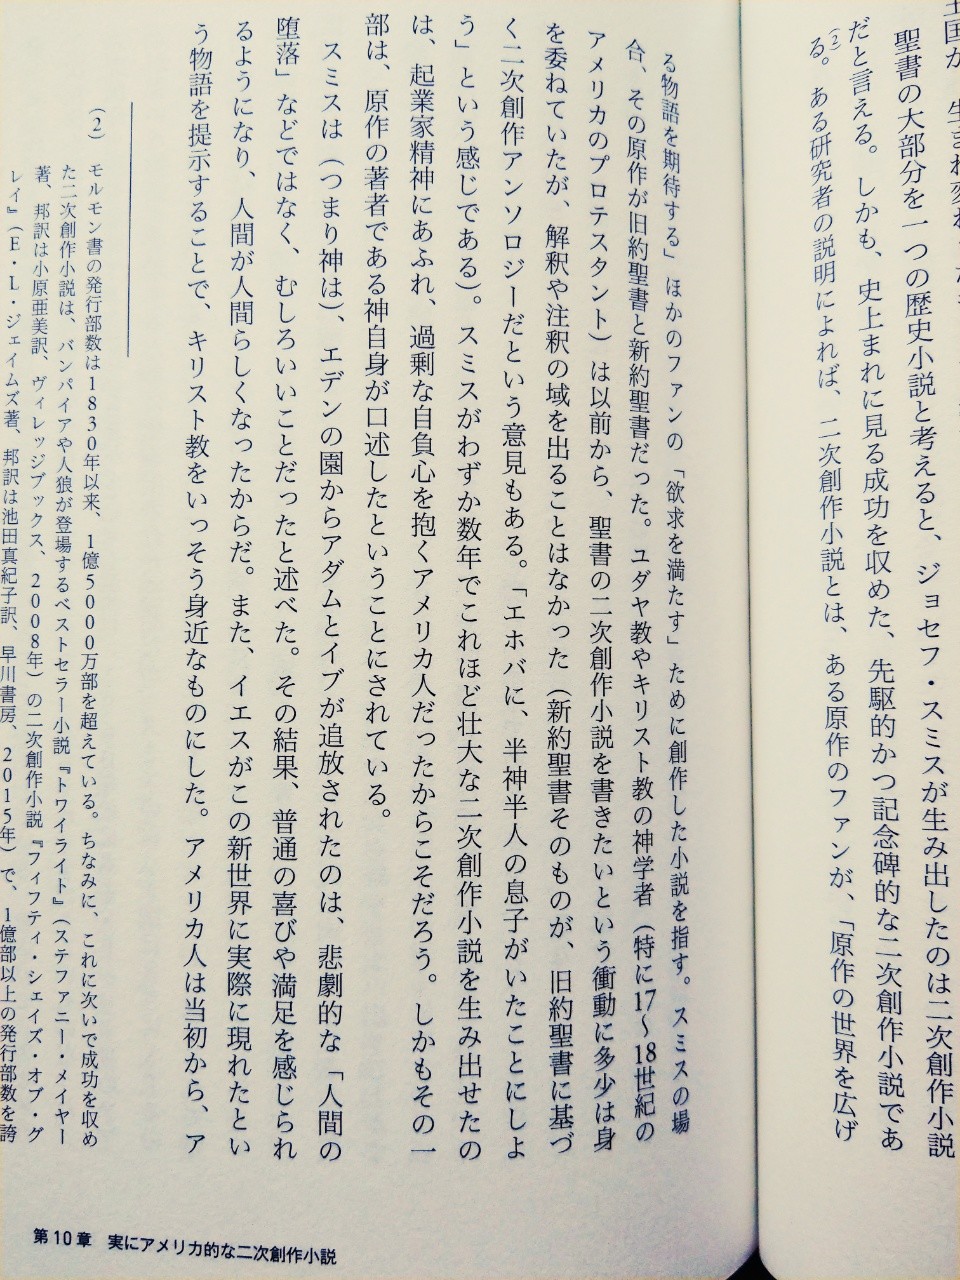 聖書の大部分を一つの歴史小説と考えると、ジョセフ・スミスが生み出したのは二次創作小説
だと言える。しかも、史上まれに見る成功を収めた、先駆的かつ記念碑的な二次創作小説であ
る(2)。ある研究者の説明によれば、二次創作小説とは、ある原作のファンが、「原作の世界を広げ
る物語を期待する」ほかのファンの「欲求を満たす」ために創作した小説を指す。スミスの場
合、その原作が旧約聖書と新約聖書だった。ユダヤ教やキリスト教の神学者（特に17～18世紀の
アメリカのプロテスタント）は以前から、聖書の二次創作小説を書きたいという衝動に多少は身
を委ねていたが、解釈や注釈の域を出ることはなかった（新約聖書そのものが、旧約聖書に基づ
く二次創作アンソロジーだという意見もある。「エホバに、半神半人の息子がいたことにしよ
う」という感じである）。スミスがわずか数年でこれほど壮大な二次創作小説を生み出せたの
は、起業家精神にあふれ、過剰な自負心を抱くアメリカ人だったからこそだろう。しかもその一
部は、原作の著者である神自身が口述したということにされている。
スミスは（つまり神は）、エデンの園からアダムとイブが追放されたのは、悲劇的な「人間の
堕落」などではなく、むしろいいことだったと述べた。その結果、普通の喜びや満足を感じられ
るようになり、人間が人間らしくなったからだ。また、イエスがこの新世界に実際に現れたとい
う物語を提示することで、キリスト教をいっそう身近なものにした。アメリカ人は当初から、ア
（2） モルモン書の発行部数は1830年以来、1億5000万部を超えている。ちなみに、これに次いで成功を収め
た二次創作小説は、バンパイアや人狼が登場するベストセラー小説『トワイライト』（ステファニー・メイヤー
著、邦訳は小原亜美訳、ヴィレッジブックス、2008年）の二次創作小説『フィフティ・シェイズ・オブ・グ
レイ』（E・L・ジェイムズ著、邦訳は池田真紀子訳、早川書房、2015年）で、1億部以上の発行部数を誇
第10章 実にアメリカ的な二次創作小説